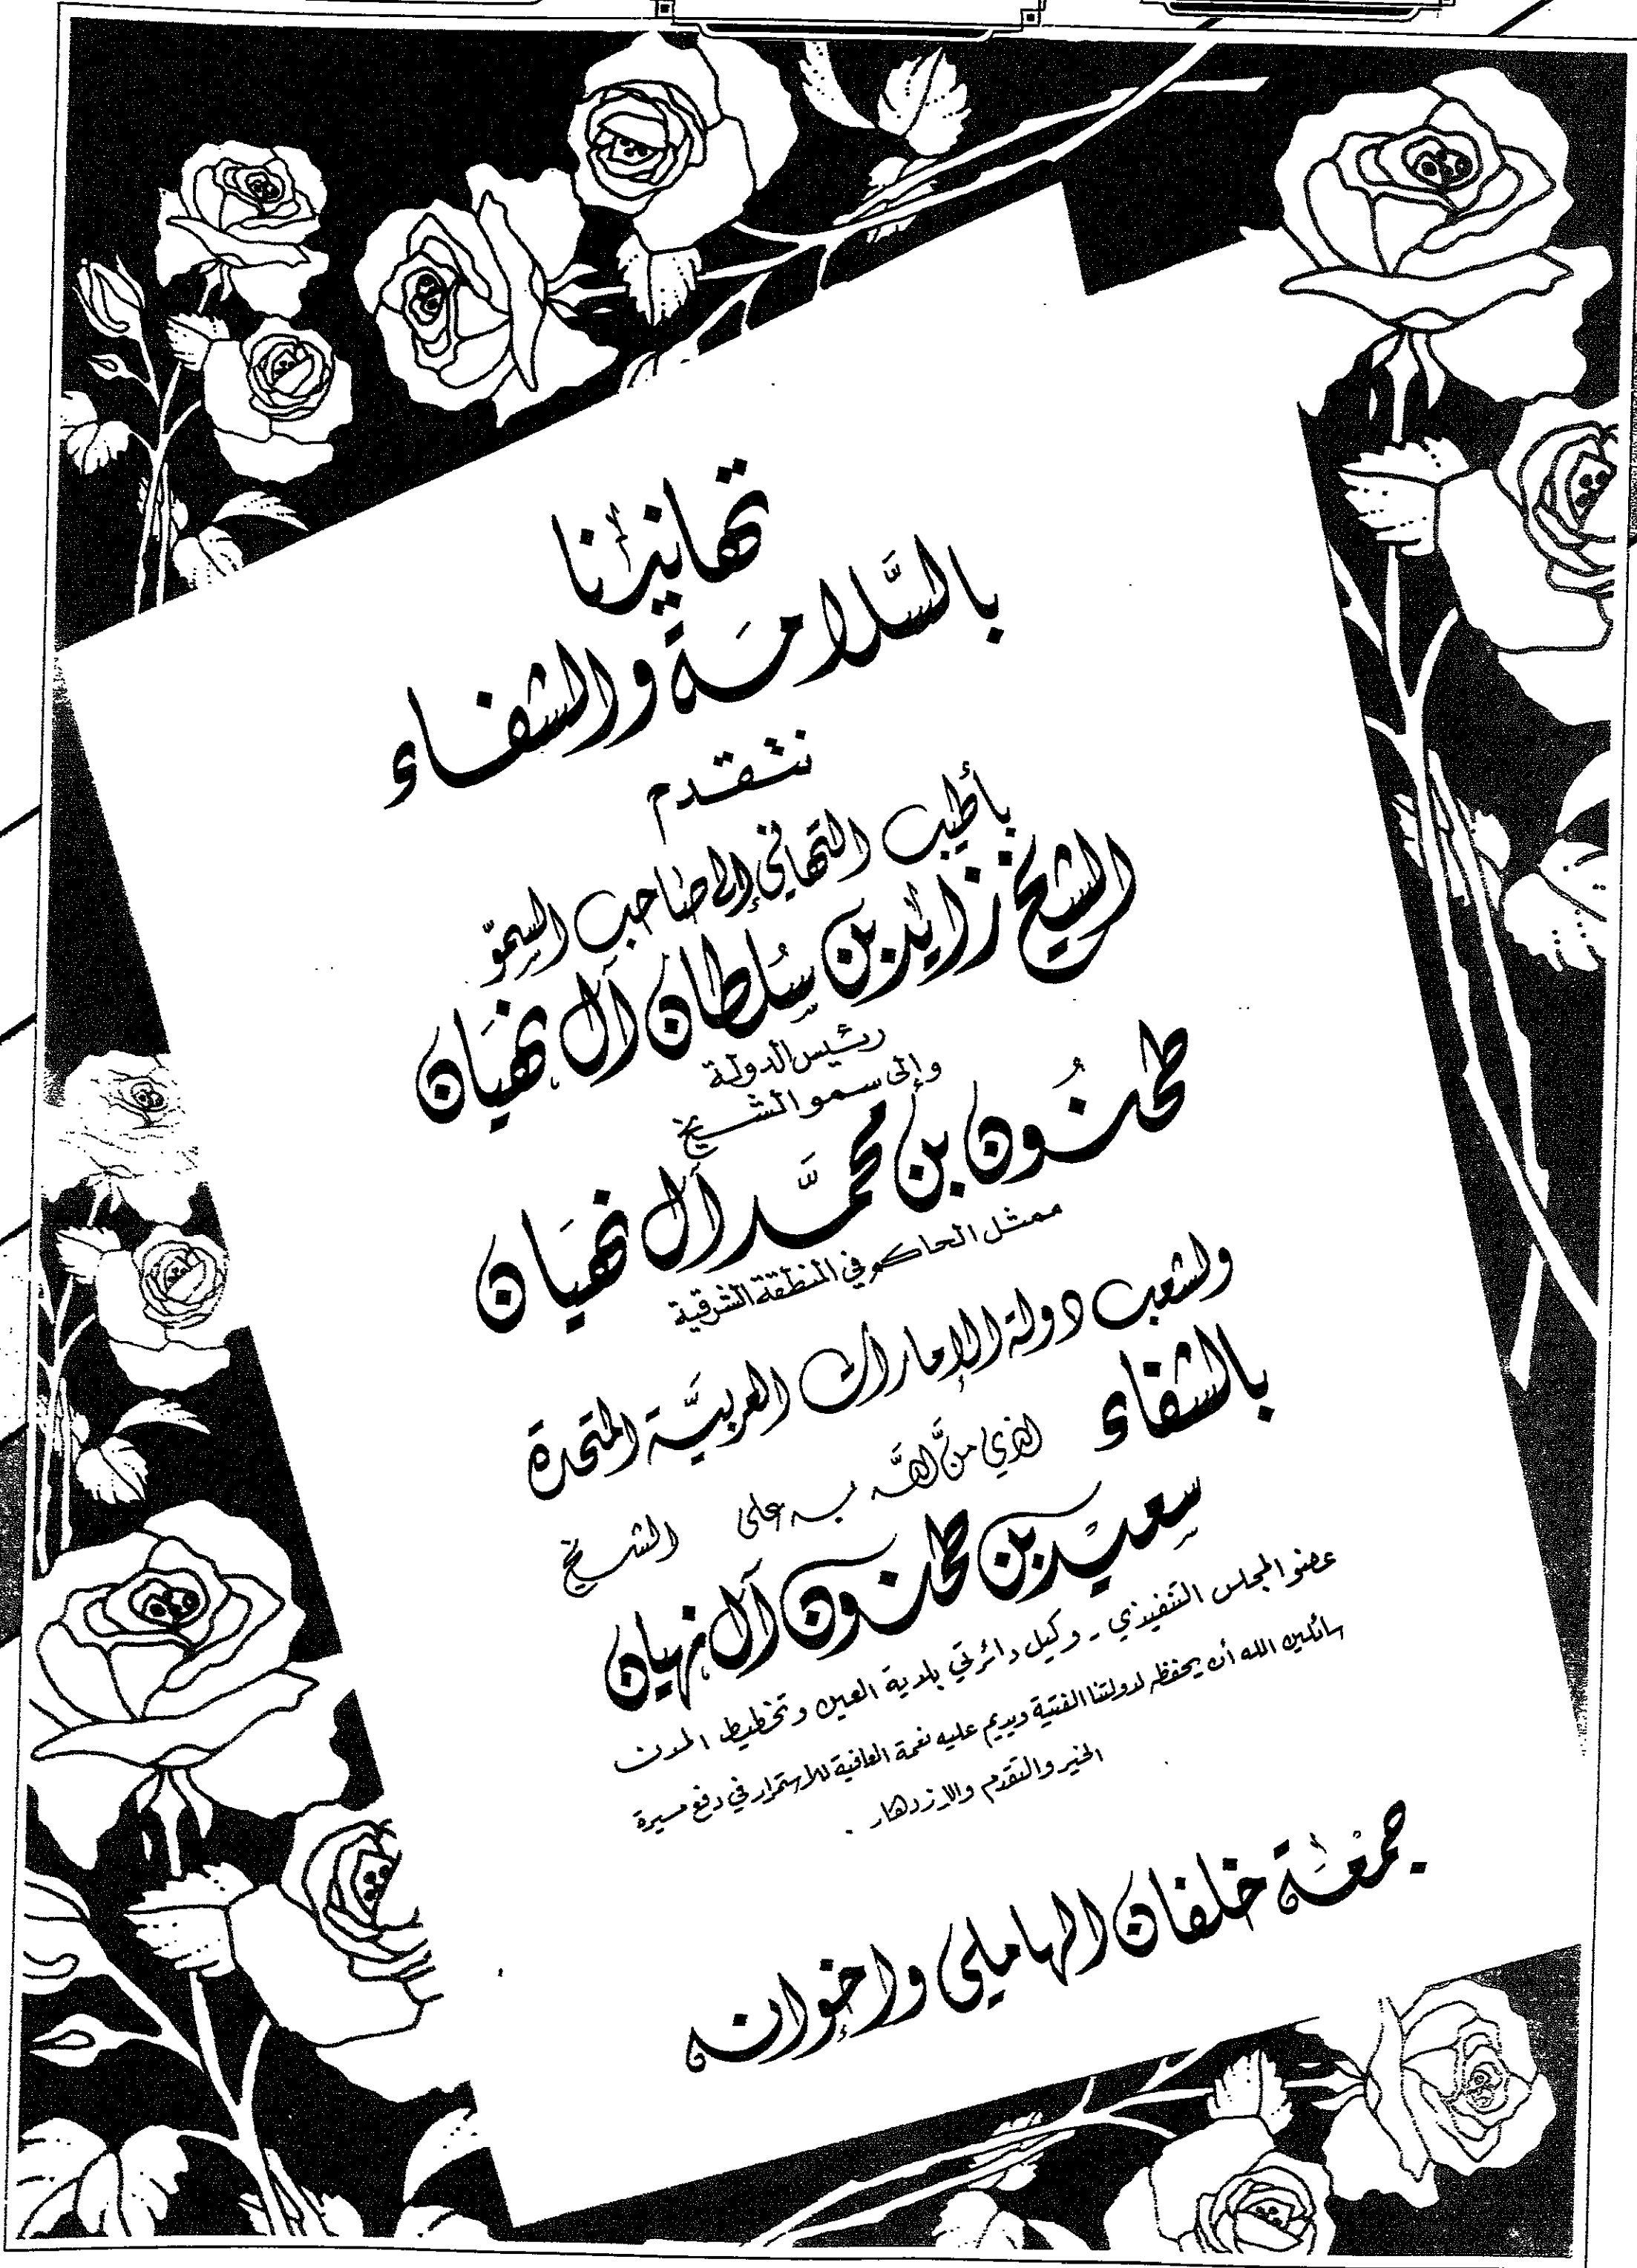 تهانينا
بالسَّلامَة والشفاء
نتقدم
بأطيب التهاني إلى صاحب السموّ
الشيخ زايد بن سُلطان آل نهيَان
رئيس الدولة
وإلى سمو الشيخ
طحنُون بن محمَّد آل نهيَان
ممثل الحاكم في المنطقة الشرقية
ولشعب دولة الإمارات العربيَّة المتحدة
بالشفاء الذي منَّ الله به على الشيخ
سعيد بن طحنون آل نهيان
عضو المجلس التنفيذي - وكيل دائرتي بلدية العين وتخطيط المدن
سائلين الله أن يحفظه لدولتنا الفتية ويديم عليه نعمة العافية للاستمرار في دفع مسيرة
الخير والتقدم والازدهار .
جمعَة خلفان الهاملي وإخوانه